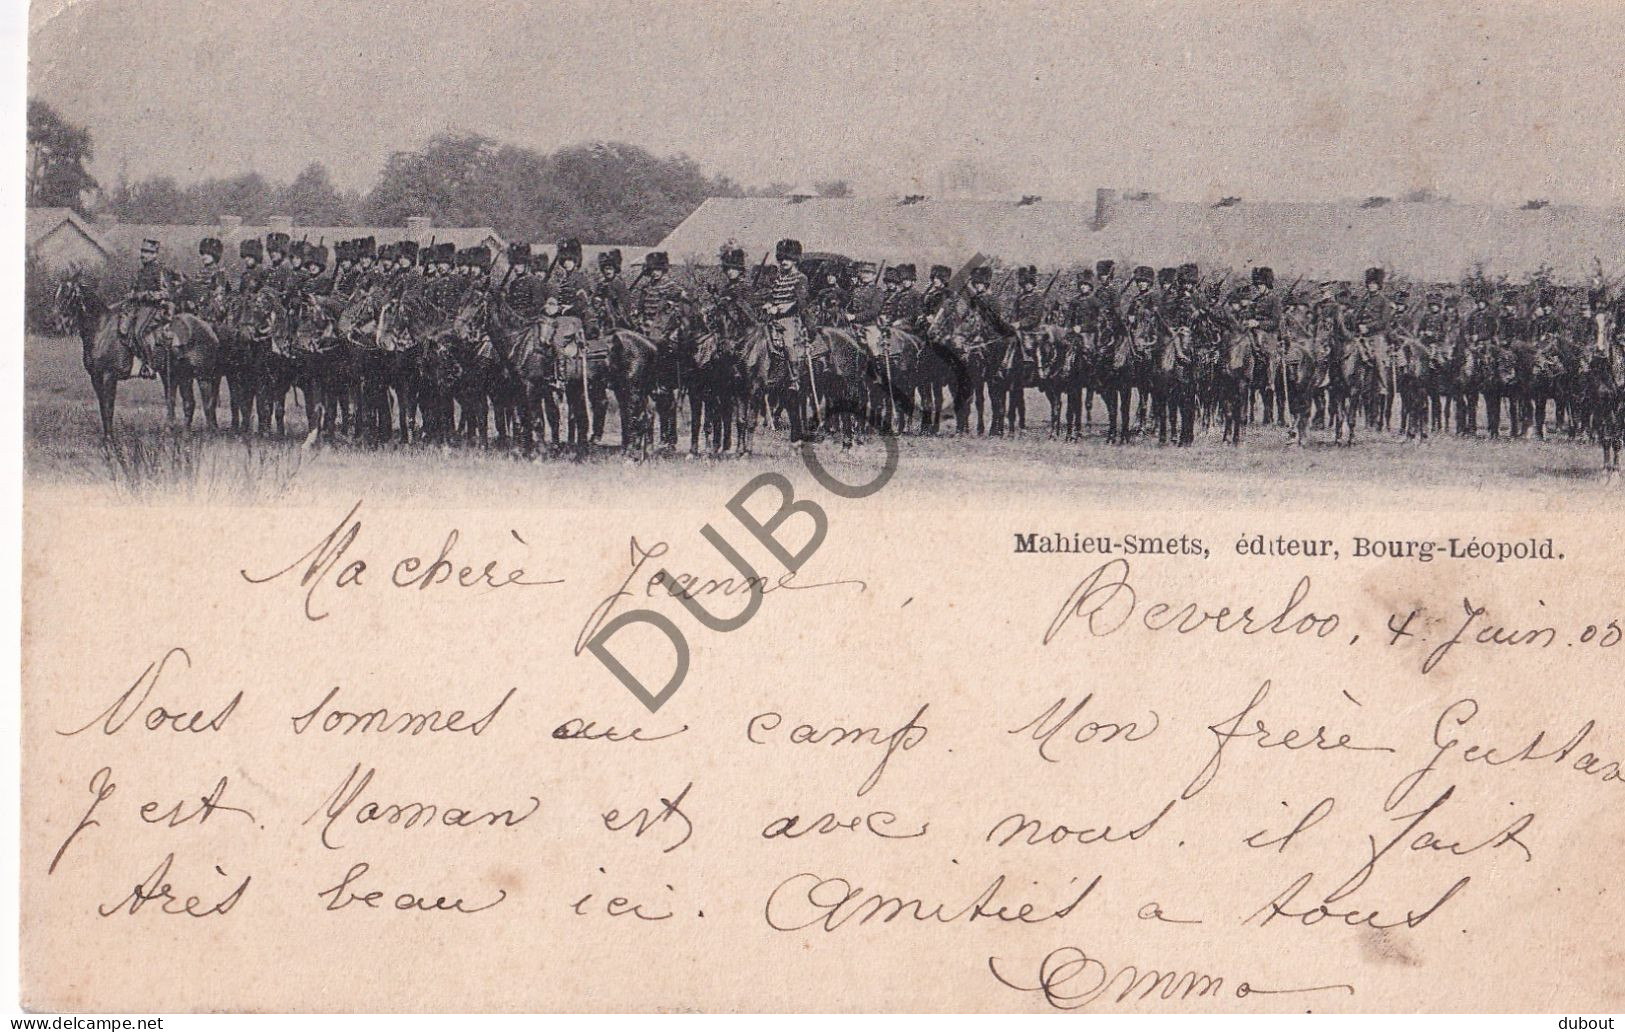 Mahieu-Smets, éditeur, Bourg-Léopold.
Ma cherè Jeanne,
Beverloo, 4 Juin. 00
Nous sommes au camp. Mon frerè Gustav
y est. Maman est avec nous. il fait
très beau ici. Amitiés a tous.
Emma.
DUBOUT
delcampe.net
dubout